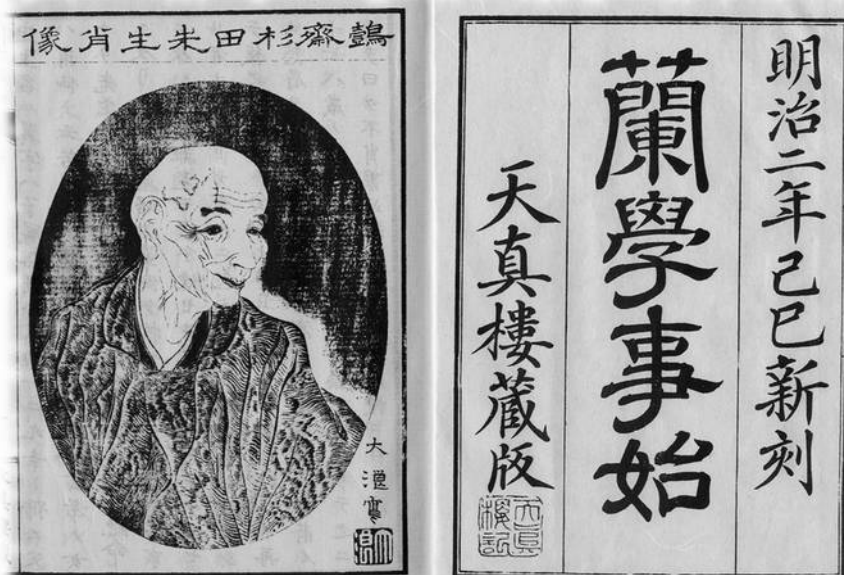 明治二年己巳新刻
蘭學事始
天真樓藏版
天真樓記
鷧齋杉田先生肖像
大